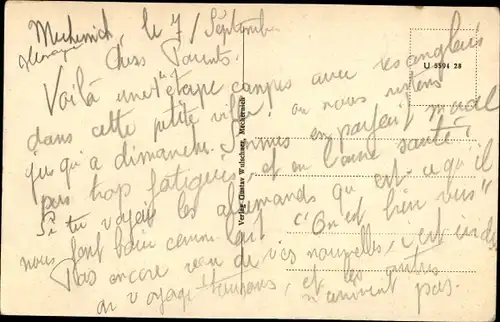 Mechernich, le 7 / Septembre
Chers Parents.
Voilà une 1e étape campés avec les anglais
dans cette petite ville, où nous restons
jusqu'à dimanche. Sommes en parfait moral
pas trop fatigués, et en bonne santé!
Si tu voyais les allemands qui est ce qu'il
nous font bain comme
"On est bien vus"
Pas encore reçu de vos nouvelles, c'est
on voyage toujours, et les autres
n'arrivent pas.
U 5594 28
Verlag Gustav Walschner, Mechernich